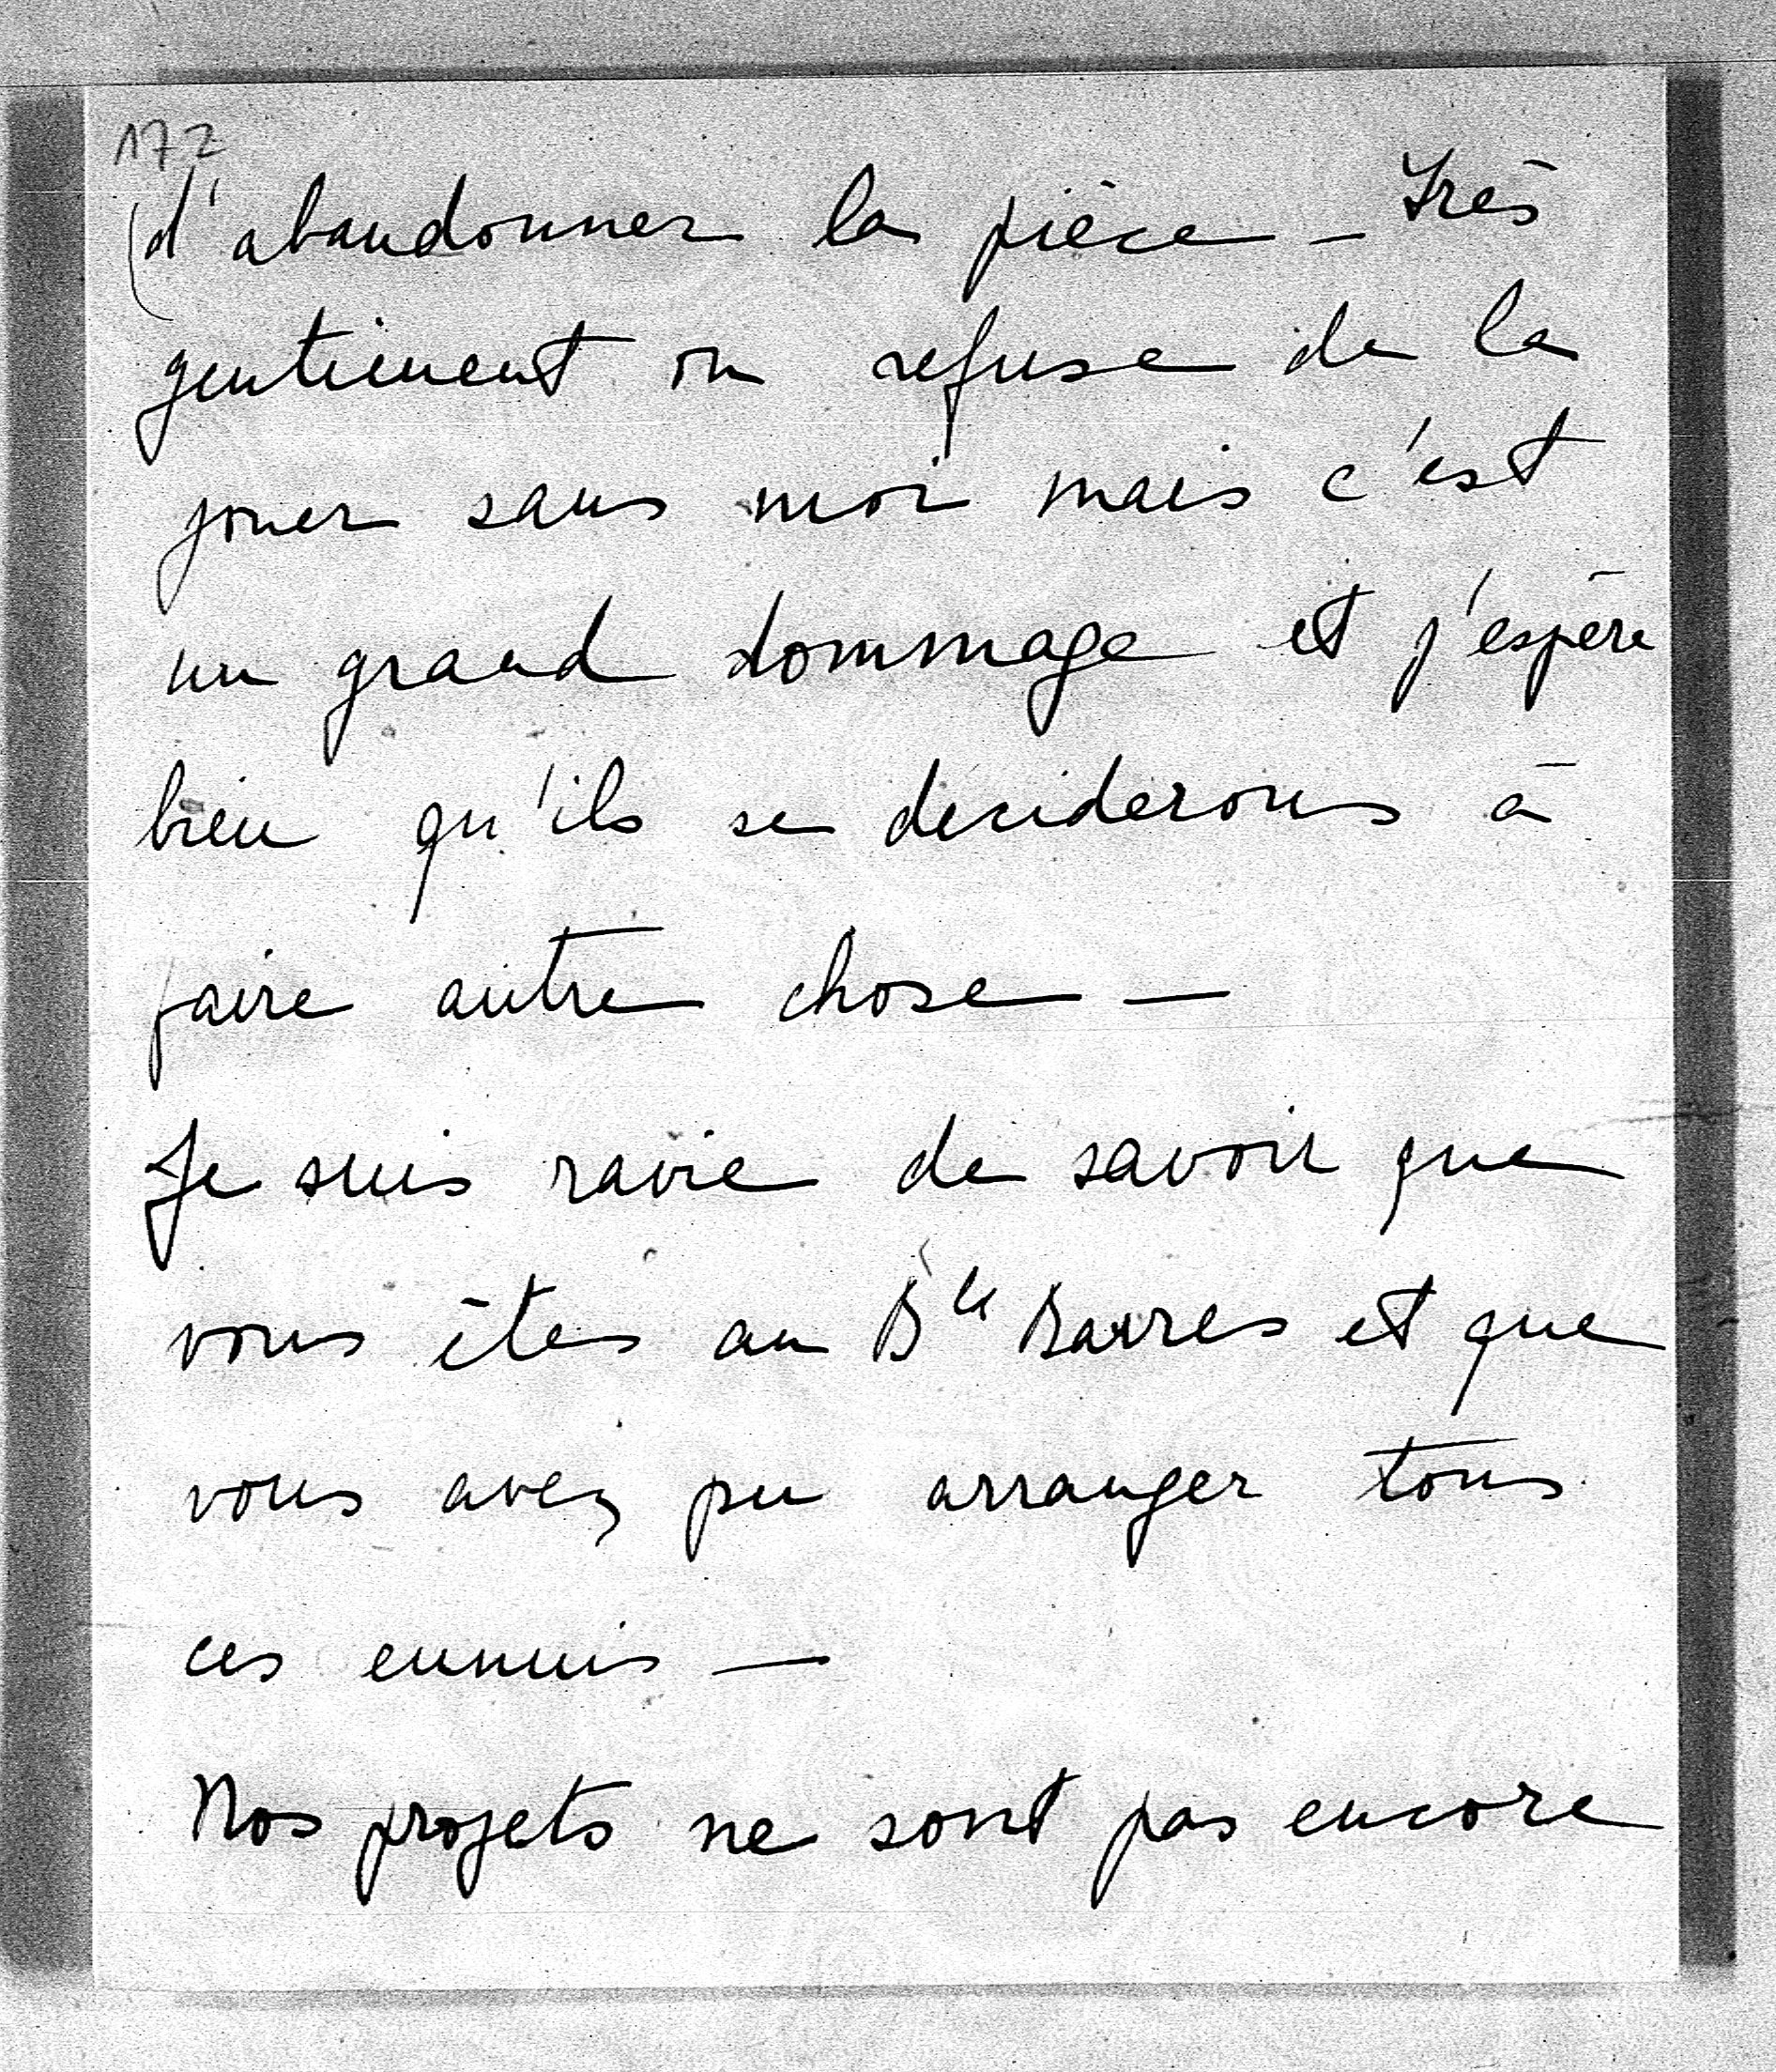 172
d'abandonner la pièce — Très
gentiement on refuse de la
jouer sans moi mais c'est
un grand dommage et j'espère
bien qu'ils se deciderons à
faire autre chose —
Je suis ravie de savoir que
vous êtes au Bld Barres et que
vous avez pu arranger tous
ces ennuis —
Nos projets ne sont pas encore